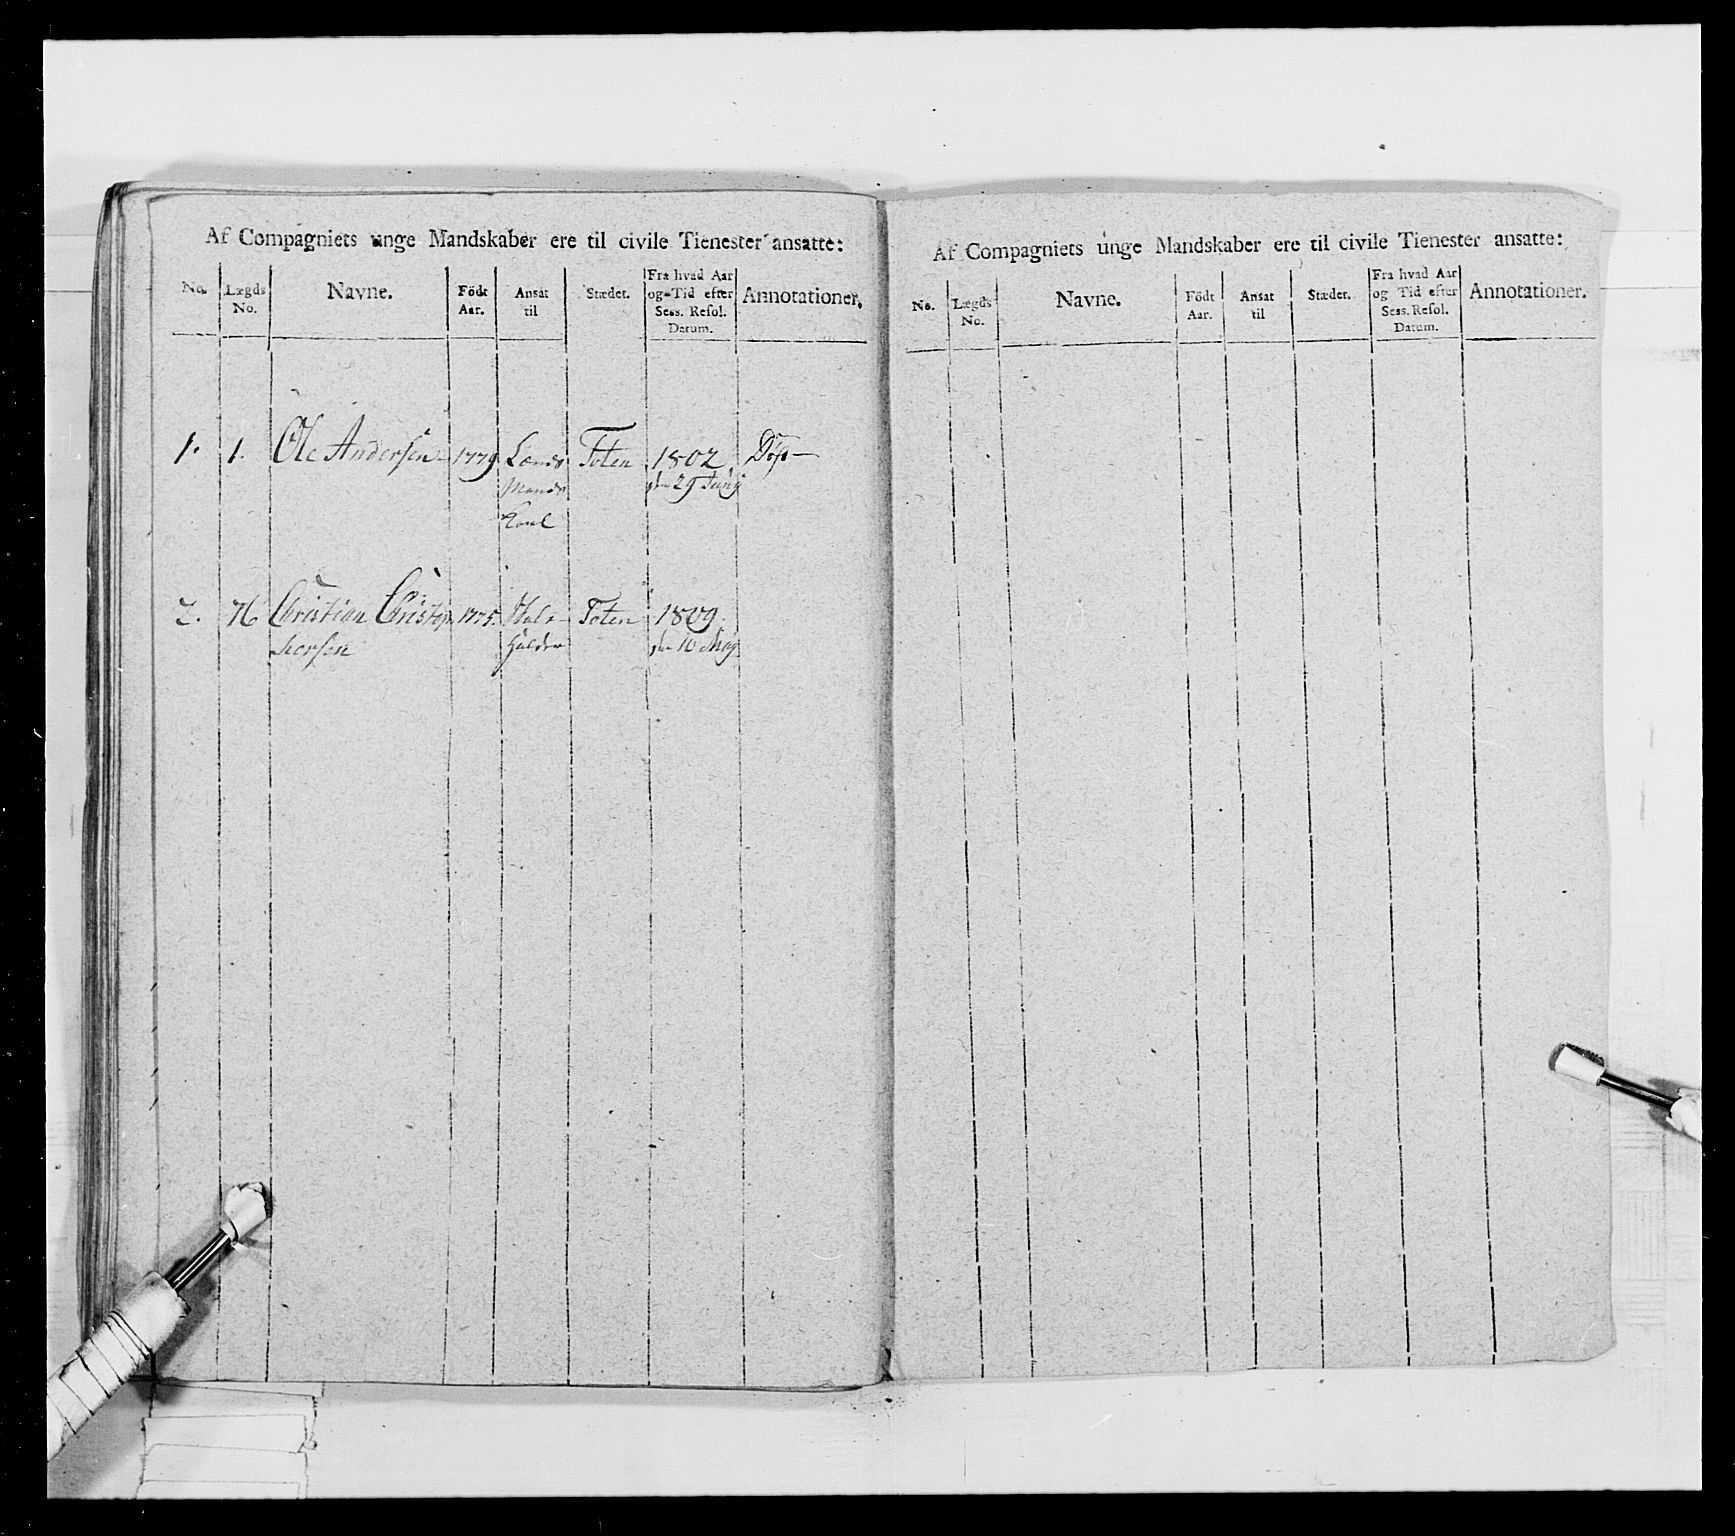 Af Compagniets unge Mandskaber ere til civile Tienester ansatte:
No. Lægds No. Navne. Födt Aar. Ansat til Stædet. Fra hvad Aar og Tid efter Sess. Resol. Datum. Annotationer.
1. 1. Ole Andersen 1779 Lænds Toten 1802 Død
Mands den 29 Junÿ
Karl
2. 16 Christian Christop 1775. Skole Toten 1809.
hersen Holder den 16 Maÿ
Af Compagniets unge Mandskaber ere til civile Tienester ansatte:
No. Lægds No. Navne. Födt Aar. Ansat til Stædet. Fra hvad Aar og Tid efter Sess. Resol. Datum. Annotationer.